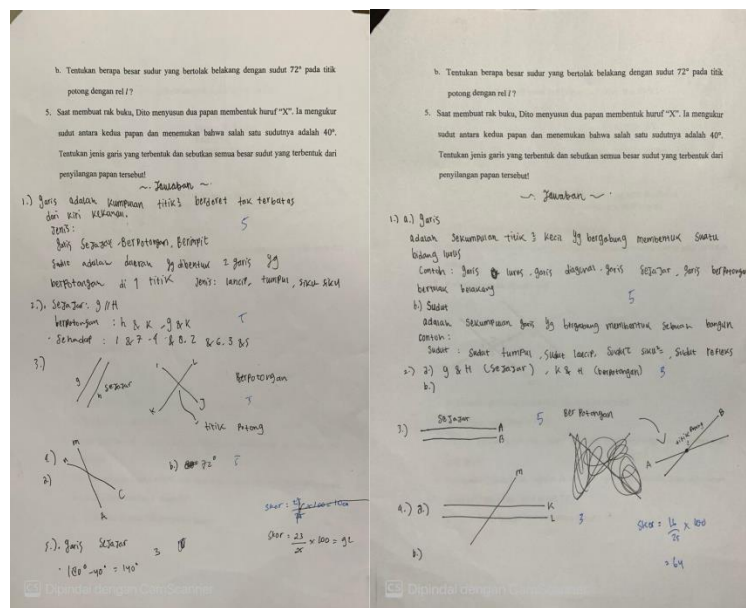 b. Tentukan berapa besar sudur yang bertolak belakang dengan sudut 72° pada titik
potong dengan rel l ?
5. Saat membuat rak buku, Dito menyusun dua papan membentuk huruf "X". Ia mengukur
sudut antara kedua papan dan menemukan bahwa salah satu sudutnya adalah 40°.
Tentukan jenis garis yang terbentuk dan sebutkan semua besar sudut yang terbentuk dari
penyilangan papan tersebut!
Jawaban
1.) garis adalah kumpulan titik² berderet tak terbatas
dari kiri kekanan.
Jenis:
garis Sejajar, Berpotongan, Berimpit
Sudut adalah daerah yg dibentuk 2 garis yg
berpotongan di 1 titik Jenis: lancip, tumpul, siku siku
5
2.). Sejajar: g // H
berpotongan : h & K , g & K
Sehadap : 1 & 7
3.)
g
h
sejajar
L
K
J
Berpotongan
titik Potong
a)
m
b) 72°
5.). garis Sejajar
180° - 40° = 140°
3
Skor : 23/25 x 100 = 92
CS Dipindai dengan CamScanner
b. Tentukan berapa besar sudur yang bertolak belakang dengan sudut 72° pada titik
potong dengan rel l ?
5. Saat membuat rak buku, Dito menyusun dua papan membentuk huruf "X". Ia mengukur
sudut antara kedua papan dan menemukan bahwa salah satu sudutnya adalah 40°.
Tentukan jenis garis yang terbentuk dan sebutkan semua besar sudut yang terbentuk dari
penyilangan papan tersebut!
Jawaban
1.) a.) garis
adalah sekumpulan titik² kecil yg bergabung membentuk suatu
bidang lurus
Contoh : garis lurus, garis diagonal, garis sejajar, garis berpotongan
bertolak belakang
5
b.) Sudut
adalah sekumpulan garis yg bergabung membentuk sebuah bangun
contoh:
Sudut : Sudut tumpul, Sudut lancip, Sudut siku², Sudut refleks
2.) a) g & H (sejajar) , K & H (berpotongan) 3
b.)
3.) Sejajar
A
B
5
Berpotongan
titik Potong
A
B
4.) a.)
m
K
L
3
b.)
Skor : 16/25 x 100
= 64
CS Dipindai dengan CamScanner